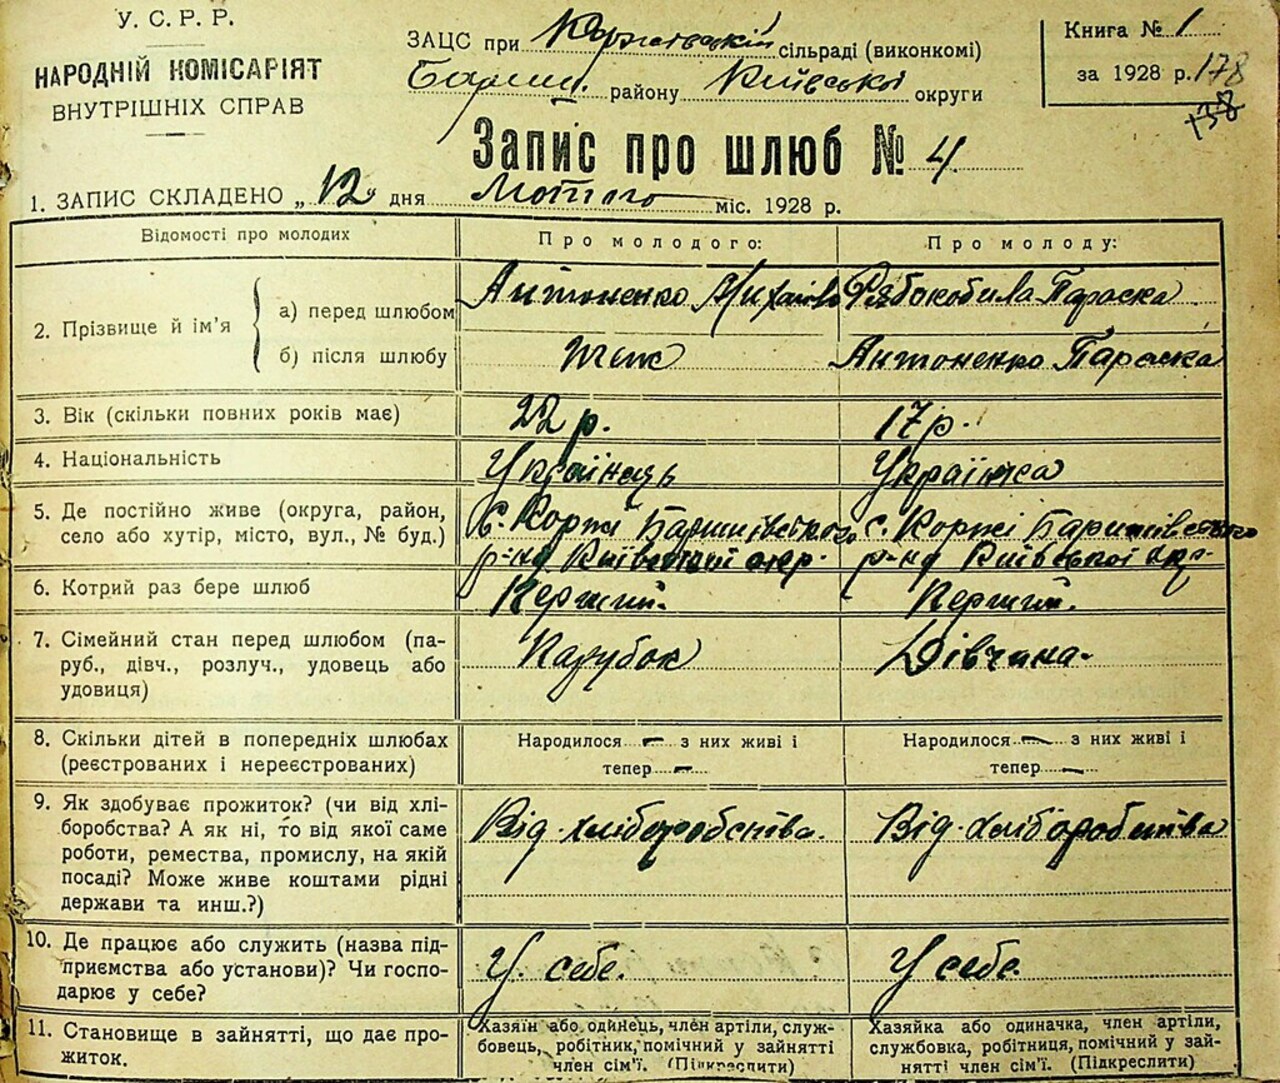 У. С. Р. Р.
НАРОДНІЙ КОМІСАРІЯТ
ВНУТРІШНІХ СПРАВ
ЗАЦС при Коржівській сільраді (виконкомі)
Бариш. району Київської округи
Книга № 1
за 1928 р. 178
138
Запис про шлюб № 4
1. ЗАПИС СКЛАДЕНО „12" дня Лютого міс. 1928 р.
Відомості про молодих
Про молодого:
Про молоду:
2. Прізвище й ім'я
а) перед шлюбом
Антоненко Михайло
Рябокобила Параска
б) після шлюбу
теж
Антоненко Параска
3. Вік (скільки повних років має)
22 р.
17 р.
4. Національність
Українець
Українка
5. Де постійно живе (округа, район,
село або хутір, місто, вул., № буд.)
с. Коржі Баришівського
р-ну Київської окр.
с. Коржі Баришівського
р-ну Київської окр.
6. Котрий раз бере шлюб
Перший.
Перший.
7. Сімейний стан перед шлюбом (па-
руб., дівч., розлуч., удовець або
удовиця)
Парубок
Дівчина.
8. Скільки дітей в попередніх шлюбах
(реєстрованих і нереєстрованих)
Народилося — з них живі і
тепер —
Народилося — з них живі і
тепер —
9. Як здобуває прожиток? (чи від хлі-
боробства? А як ні, то від якої саме
роботи, ремества, промислу, на якій
посаді? Може живе коштами рідні
держави та инш.?)
Від хліборобства.
Від хліборобства
10. Де працює або служить (назва під-
приємства або установи)? Чи госпо-
дарює у себе?
У себе.
У себе.
11. Становище в зайнятті, що дає про-
житок.
Хазяїн або одинець, член артіли, служ-
бовець, робітник, помічний у зайнятті
член сім'ї. (Підкреслити)
Хазяйка або одиначка, член артіли,
службовка, робітниця, помічний у зай-
нятті член сім'ї. (Підкреслити)